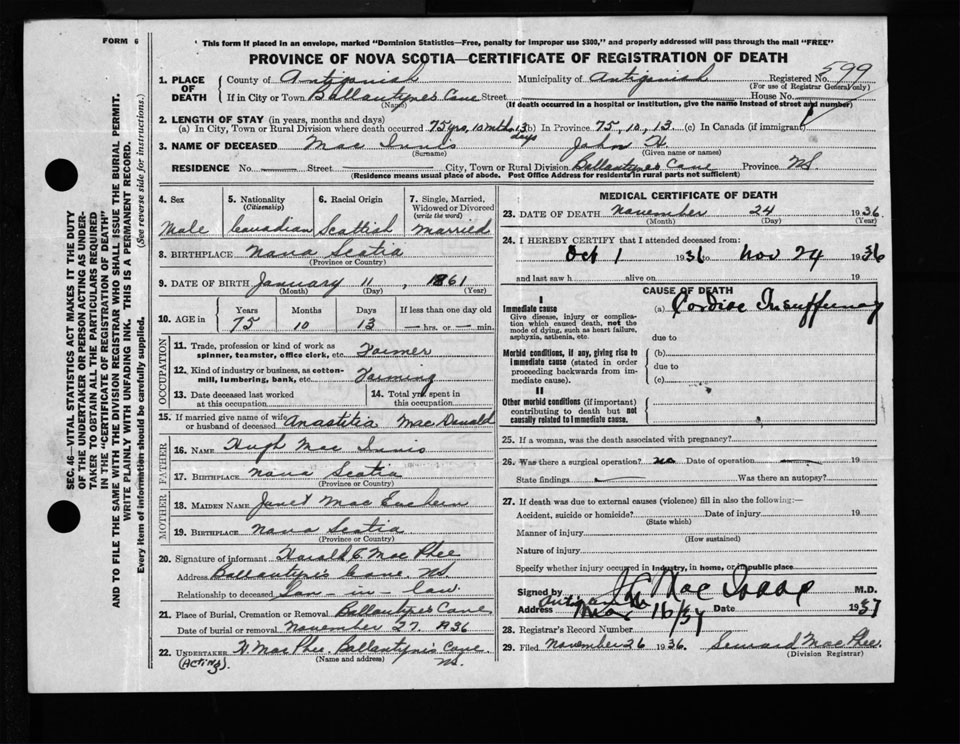 FORM 6
This form if placed in an envelope, marked "Dominion Statistics—Free, penalty for improper use $300," and properly addressed will pass through the mail "FREE"
PROVINCE OF NOVA SCOTIA—CERTIFICATE OF REGISTRATION OF DEATH
SEC. 46—VITAL STATISTICS ACT MAKES IT THE DUTY
OF THE UNDERTAKER OR PERSON ACTING AS UNDER-
TAKER TO OBTAIN ALL THE PARTICULARS REQUIRED
IN THE "CERTIFICATE OF REGISTRATION OF DEATH"
AND TO FILE THE SAME WITH THE DIVISION REGISTRAR WHO SHALL ISSUE THE BURIAL PERMIT.
WRITE PLAINLY WITH UNFADING INK. THIS IS A PERMANENT RECORD.
Every item of information should be carefully supplied. (See reverse side for instructions.)
1. PLACE OF DEATH County of Antigonish Municipality of Antigonish Registered No. 599
(For use of Registrar General only)
If in City or Town Ballantynes Cove Street House No.
(Name) (If death occurred in a hospital or institution, give the name instead of street and number)
2. LENGTH OF STAY (in years, months and days)
(a) In City, Town or Rural Division where death occurred 75 yrs, 10 mths 13 days (b) In Province 75, 10, 13 (c) In Canada (if immigrant)
3. NAME OF DECEASED Mac Innis John H.
(Surname) (Given name or names)
RESIDENCE No. Street City, Town or Rural Division Ballantynes Cove Province NS
(Residence means usual place of abode. Post Office Address for residents in rural parts not sufficient)
4. Sex Male
5. Nationality (Citizenship) Canadian
6. Racial Origin Scottish
7. Single, Married, Widowed or Divorced (write the word) Married
8. BIRTHPLACE Nova Scotia
(Province or Country)
9. DATE OF BIRTH January 11, 1861
(Month) (Day) (Year)
10. AGE in Years 75 Months 10 Days 13 If less than one day old — hrs. or — min.
OCCUPATION
11. Trade, profession or kind of work as spinner, teamster, office clerk, etc. Farmer
12. Kind of industry or business, as cotton-mill, lumbering, bank, etc. Farming
13. Date deceased last worked at this occupation
14. Total yrs. spent in this occupation
15. If married give name of wife or husband of deceased Anastitia Mac Donald
FATHER
16. NAME Hugh Mac Innis
17. BIRTHPLACE Nova Scotia
(Province or Country)
MOTHER
18. MAIDEN NAME Janet Mac Eachern
19. BIRTHPLACE Nova Scotia
(Province or Country)
20. Signature of informant C. Mac Phee
Address Ballantynes Cove, NS
Relationship to deceased Son-in-law
21. Place of Burial, Cremation or Removal Ballantynes Cove
Date of burial or removal November 27, 1936
22. UNDERTAKER Mac Phee, Ballantynes Cove
(Acting) (Name and address) NS.
MEDICAL CERTIFICATE OF DEATH
23. DATE OF DEATH November 24 1936
(Month) (Day) (Year)
24. I HEREBY CERTIFY that I attended deceased from:
Oct 1 1936 to Nov 24 1936
and last saw h alive on 19
CAUSE OF DEATH
I
Immediate cause
Give disease, injury or complication which caused death, not the mode of dying, such as heart failure, asphyxia, asthenia, etc.
(a) Cardiac Insufficiency
due to
Morbid conditions, if any, giving rise to immediate cause (stated in order proceeding backwards from immediate cause).
(b)
due to
(c)
II
Other morbid conditions (if important) contributing to death but not causally related to immediate cause.
25. If a woman, was the death associated with pregnancy?
26. Was there a surgical operation? no Date of operation 19
State findings Was there an autopsy?
27. If death was due to external causes (violence) fill in also the following:—
Accident, suicide or homicide? Date of injury 19
(State which)
Manner of injury
(How sustained)
Nature of injury
Specify whether injury occurred in industry, in home, or in public place
Signed by Mac Isaac M.D.
Address Antigonish Date Mar 16/37 1937
28. Registrar's Record Number
29. Filed November 26 1936. Mac Phee
(Division Registrar)